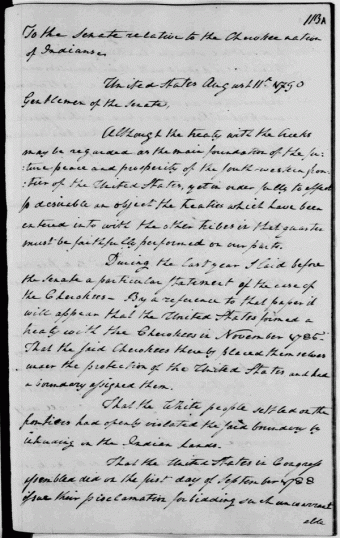 113A
To the Senate relative to the Cherokee nation
of Indians.
United States August 11th 1790
Gentlemen of the Senate,
Although the treaty with the Creeks
may be regarded as the main foundation of the fu-
-ture peace and prosperity of the South western fron-
-tier of the United States, yet in order fully to effect
so desirable an object the treaties which have been
entered into with the other tribes in that quarter
must be faithfully performed on our parts.
During the last year I laid before
the Senate a particular statement of the case of
the Cherokees - By a reference to that paper it
will appear that the United States formed a
treaty with the Cherokees in November 1785-
That the said Cherokees thereby placed themselves
under the protection of the United States and had
a boundary assigned them.
That the White people settled on the
frontiers had openly violated the said boundary by
intruding on the Indian lands.
That the United States in Congress
assembled did on the first day of September 1788
issue their proclamation forbidding such unwarrant
able